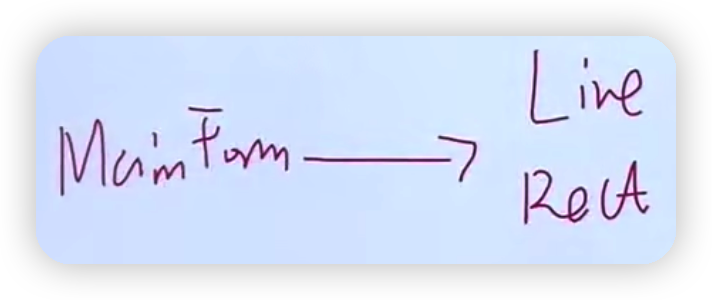 MainForm → Line
Rect